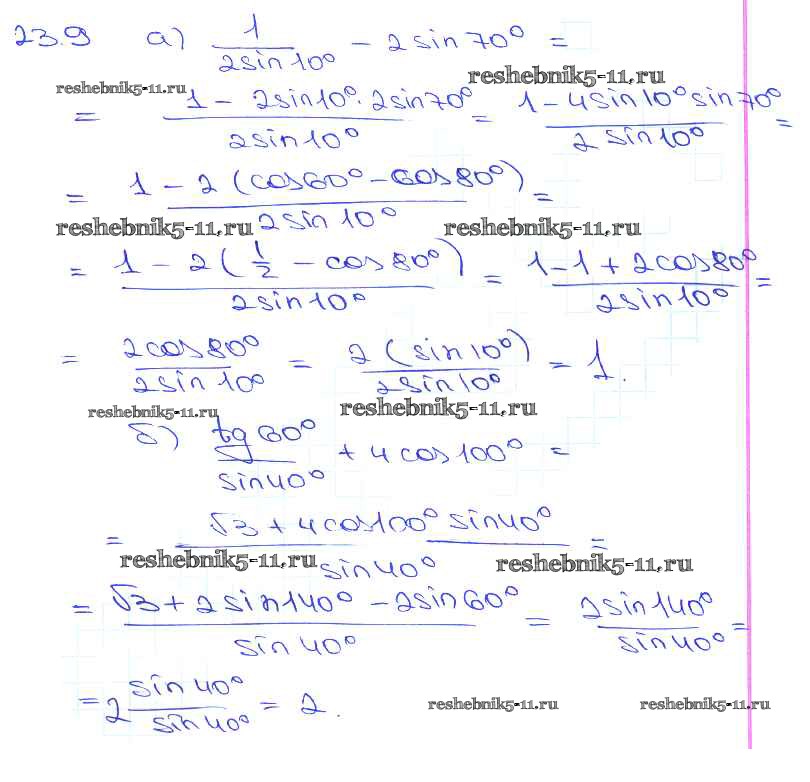 23.9 а) 1/(2sin10°) − 2sin70° =
reshebnik5-11.ru reshebnik5-11.ru
= (1 − 2sin10°·2sin70°)/(2sin10°) = (1−4sin10°sin70°)/(2sin10°) =
= (1 − 2(cos60°−cos80°))/(2sin10°) =
reshebnik5-11.ru reshebnik5-11.ru
= (1 − 2(1/2 − cos80°))/(2sin10°) = (1−1+2cos80°)/(2sin10°) =
= (2cos80°)/(2sin10°) = (2(sin10°))/(2sin10°) = 1.
reshebnik5-11.ru reshebnik5-11.ru
б) (tg60°)/(sin40°) + 4cos100° =
= (√3 + 4cos100° sin40°)/(sin40°) =
reshebnik5-11.ru reshebnik5-11.ru
= (√3 + 2sin140° − 2sin60°)/(sin40°) = (2sin140°)/(sin40°) =
= 2 (sin40°)/(sin40°) = 2.
reshebnik5-11.ru reshebnik5-11.ru